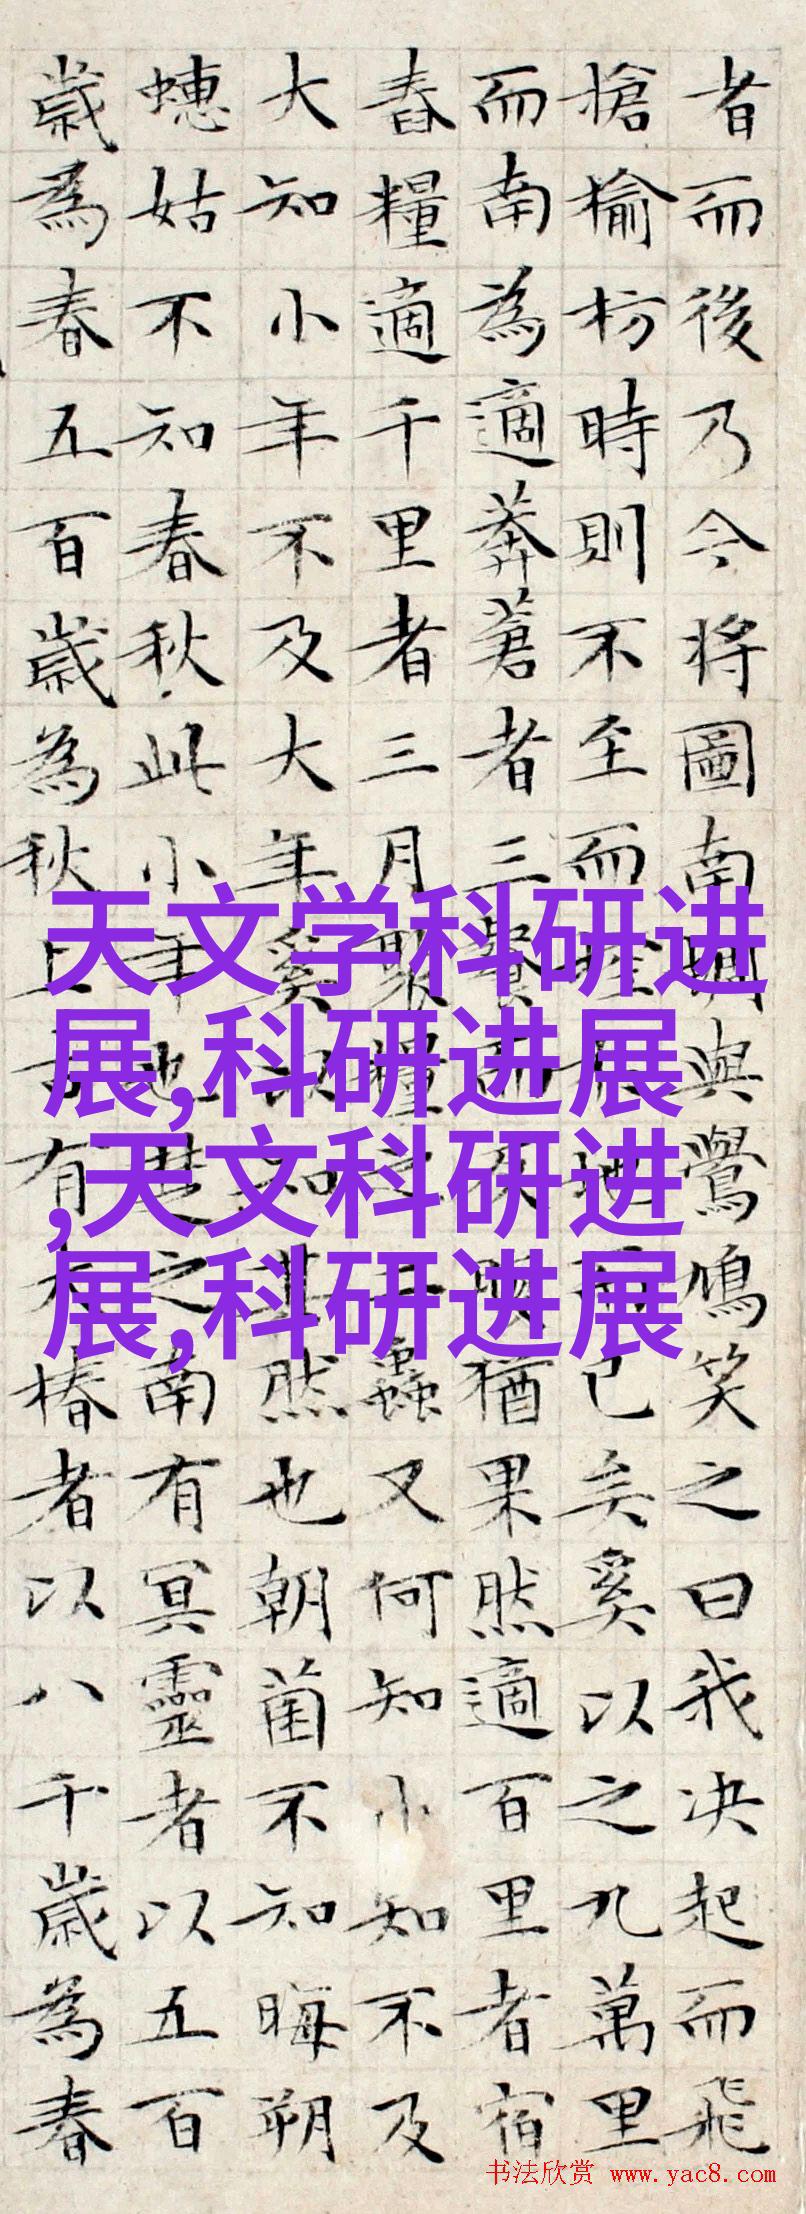 者而後乃今將圖南蜩與鷽鳩笑之曰我决起而飛
搶榆枋時則不至而控地而已矣奚以之九萬里
而南為適莽蒼者三而猶果然適百里者宿
舂糧適千里者三月聚糧之二蟲又何知小知不及
大知小年不及大年奚以知其然也朝菌不知晦朔
蟪姑不知春秋此小年也楚之南有冥靈者以五百
歲為春五百歲為秋上古有大椿者以八千歲為春
天文学科研进
展,科研进展
,天文科研进
展,科研进展
书法欣赏 www.yac8.com